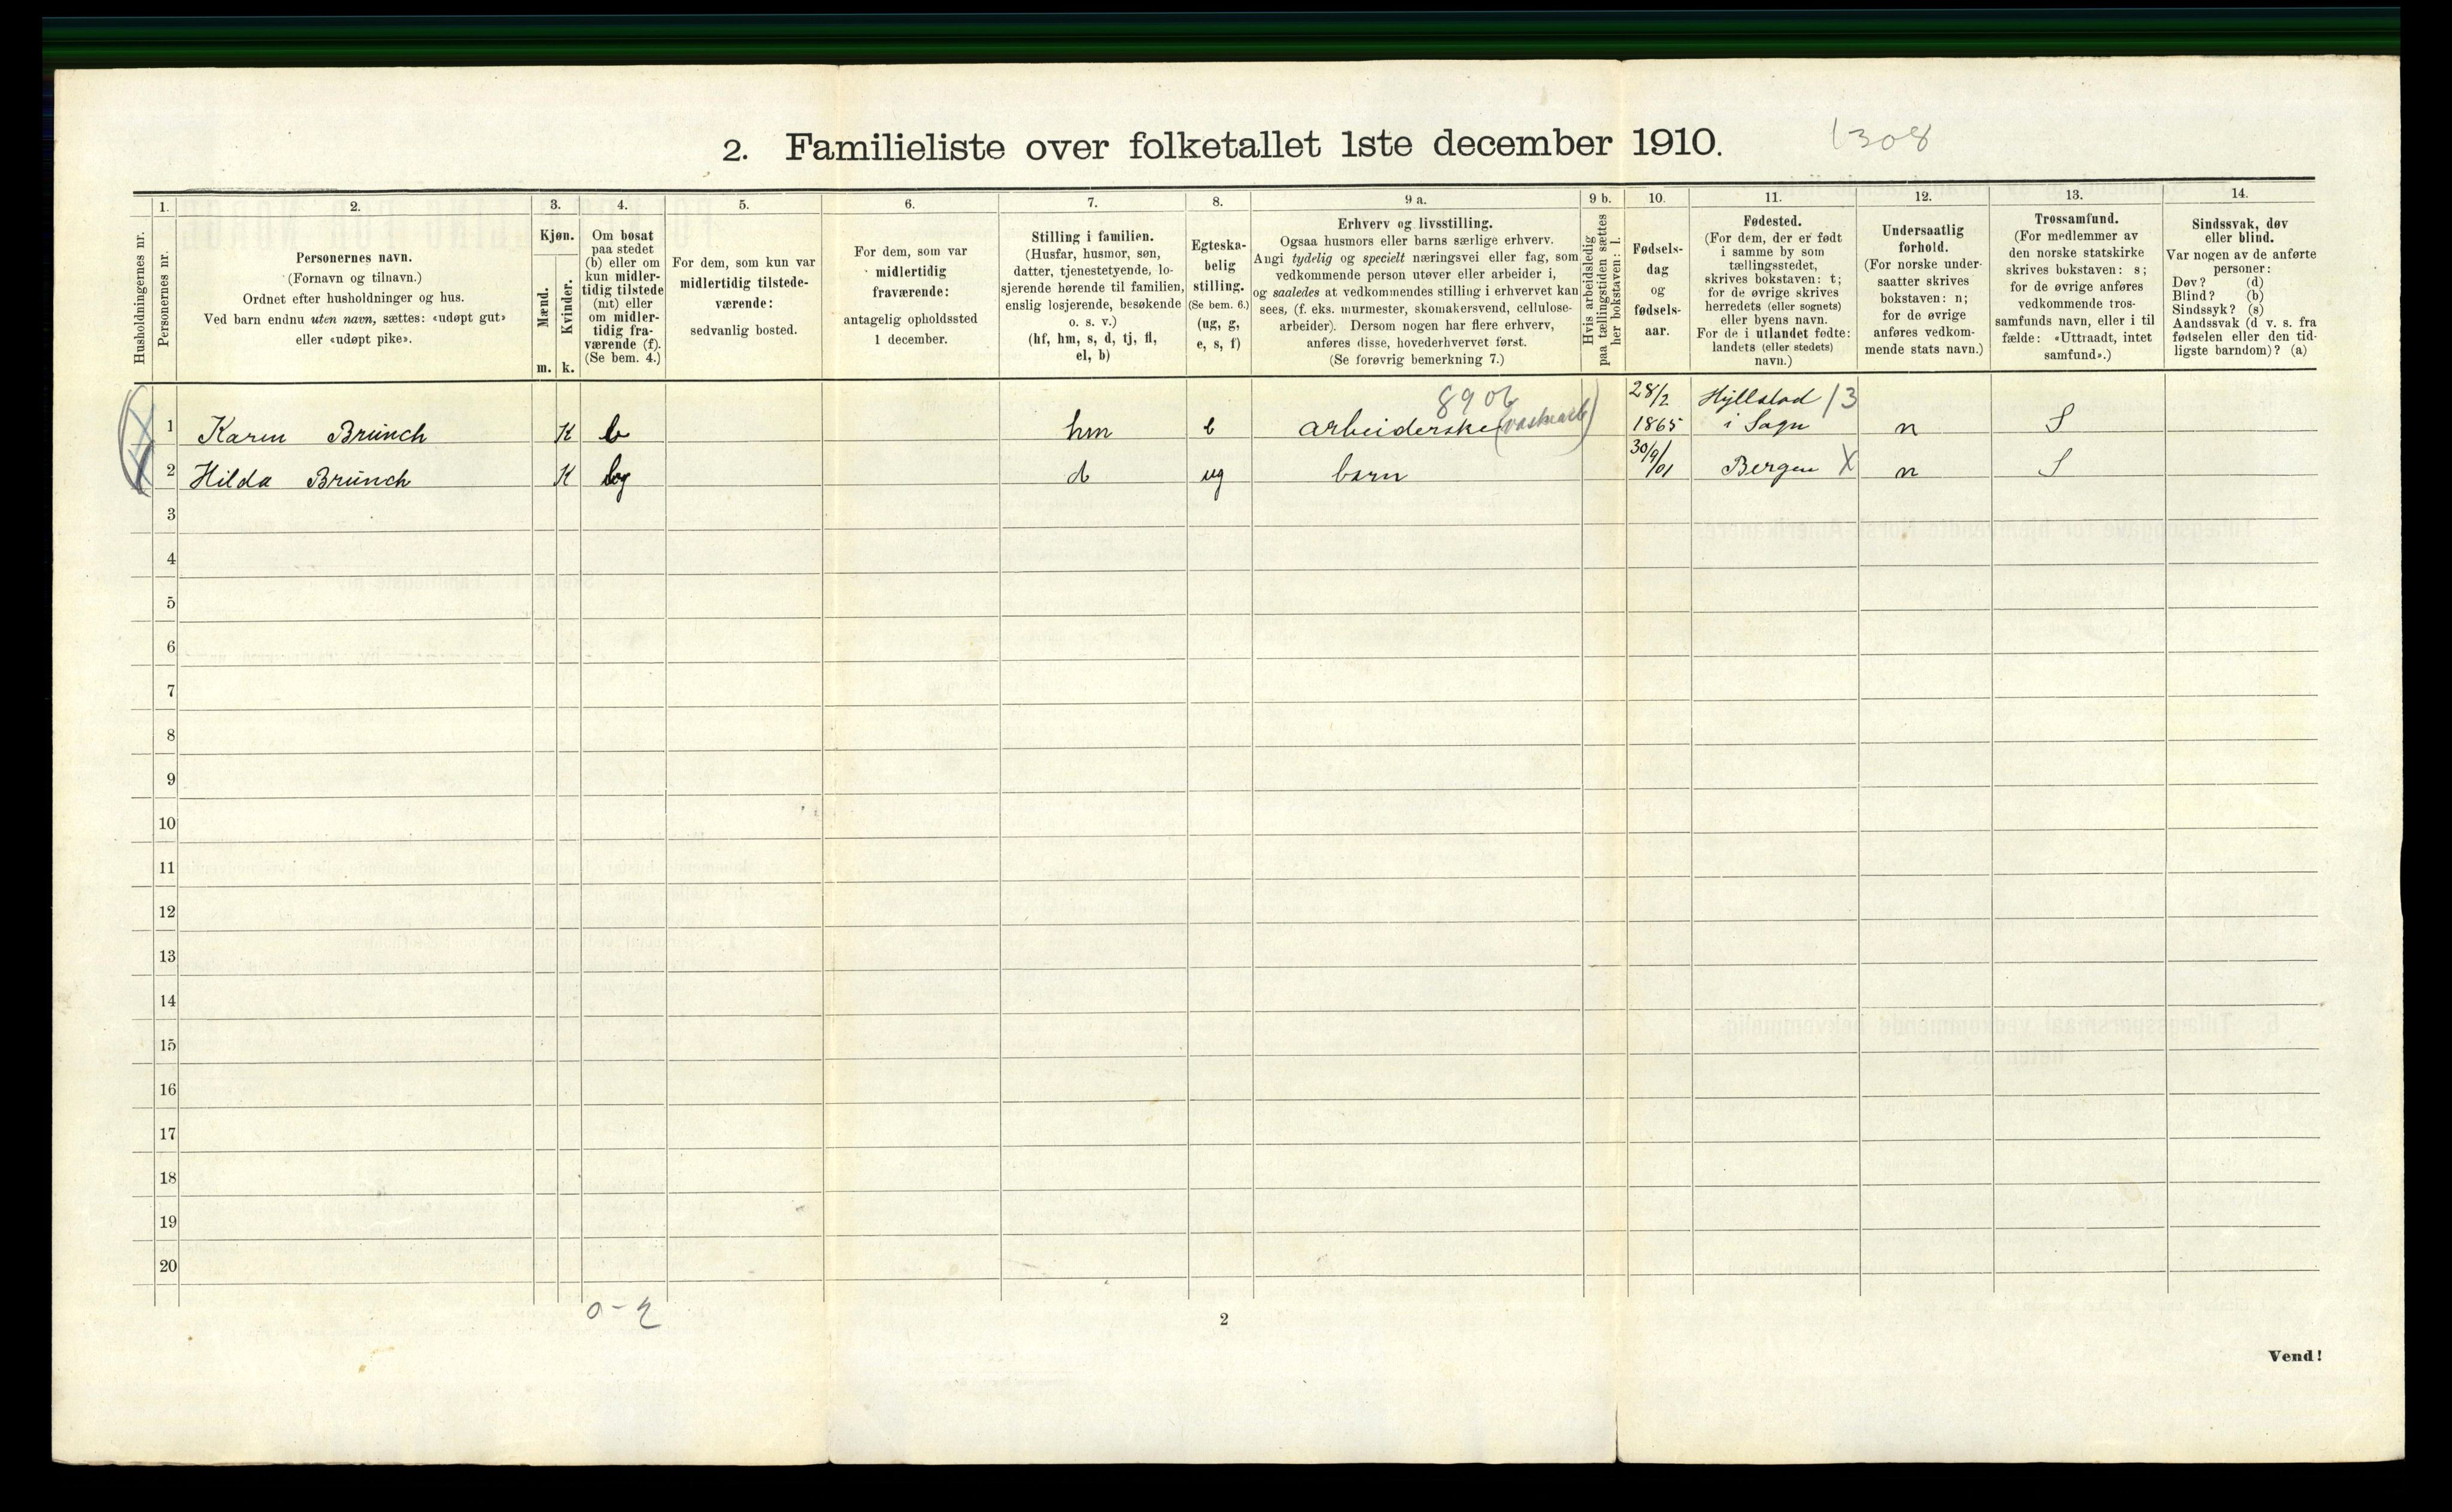 2. Familieliste over folketallet 1ste december 1910.
1308
Husholdningernes nr.
1.
Personernes nr.
2.
Personernes navn.
(Fornavn og tilnavn.)
Ordnet efter husholdninger og hus.
Ved barn endnu uten navn, sættes: «udøpt gut»
eller «udøpt pike».
3.
Kjøn.
Mænd.
Kvinder.
m. k.
4.
Om bosat
paa stedet
(b) eller om
kun midler-
tidig tilstede
(mt) eller
om midler-
tidig fra-
værende (f).
(Se bem. 4.)
5.
For dem, som kun var
midlertidig tilstede-
værende:
sedvanlig bosted.
6.
For dem, som var
midlertidig
fraværende:
antagelig opholdssted
1 december.
7.
Stilling i familien.
(Husfar, husmor, søn,
datter, tjenestetyende, lo-
sjerende hørende til familien,
enslig losjerende, besøkende
o. s. v.)
(hf, hm, s, d, tj, fl,
el, b)
8.
Egteska-
belig
stilling.
(Se bem. 6.)
(ug, g,
e, s, f)
9 a.
Erhverv og livsstilling.
Ogsaa husmors eller barns særlige erhverv.
Angi tydelig og specielt næringsvei eller fag, som
vedkommende person utøver eller arbeider i,
og saaledes at vedkommendes stilling i erhvervet kan
sees, (f. eks. murmester, skomakersvend, cellulose-
arbeider). Dersom nogen har flere erhverv,
anføres disse, hovederhvervet først.
(Se forøvrig bemerkning 7.)
9 b.
Hvis arbeidsledig
paa tællingstiden sættes
her bokstaven: l.
10.
Fødsels-
dag
og
fødsels-
aar.
11.
Fødested.
(For dem, der er født
i samme by som
tællingsstedet,
skrives bokstaven: t;
for de øvrige skrives
herredets (eller sognets)
eller byens navn.
For de i utlandet fødte:
landets (eller stedets)
navn.)
12.
Undersaatlig
forhold.
(For norske under-
saatter skrives
bokstaven: n;
for de øvrige
anføres vedkom-
mende stats navn.)
13.
Trossamfund.
(For medlemmer av
den norske statskirke
skrives bokstaven: s;
for de øvrige anføres
vedkommende tros-
samfunds navn, eller i til
fælde: «Uttraadt, intet
samfund».)
14.
Sindssvak, døv
eller blind.
Var nogen av de anførte
personer:
Døv? (d)
Blind? (b)
Sindssyk? (s)
Aandssvak (d v. s. fra
fødselen eller den tid-
ligste barndom)? (a)
8906 28/2 Hyllestad 13
1 Karen Brünch K b hm e arbeiderske 1865 i Sogn n S
2 Hilda Brünch K b d ug barn 30/9/01 Bergen X n S
3
4
5
6
7
8
9
10
11
12
13
14
15
16
17
18
19
20
0-2
2
Vend!